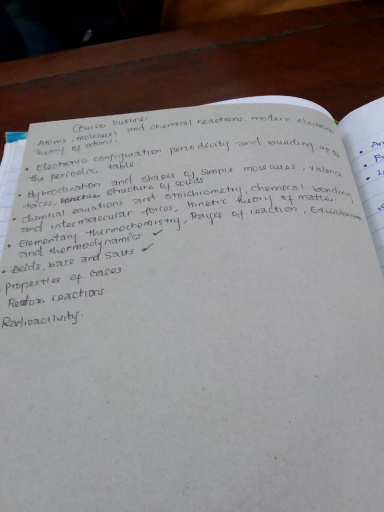 Course Outline:
Atoms, molecules and chemical reactions, modern electronic
theory of atoms.
• Electronic configuration periodicity and building up of
the periodic table
• Hybridization and shapes of simple molecules, valence
forces, structure of solids
• Chemical equations and stoichiometry, chemical bonding
and intermolecular forces, kinetic theory of matter.
• Elementary thermochemistry, Rates of reaction, Equilibrium
and thermodynamics ✓
• Acids, base and salts ✓
• properties of gases
Redox reactions
Radioactivity.